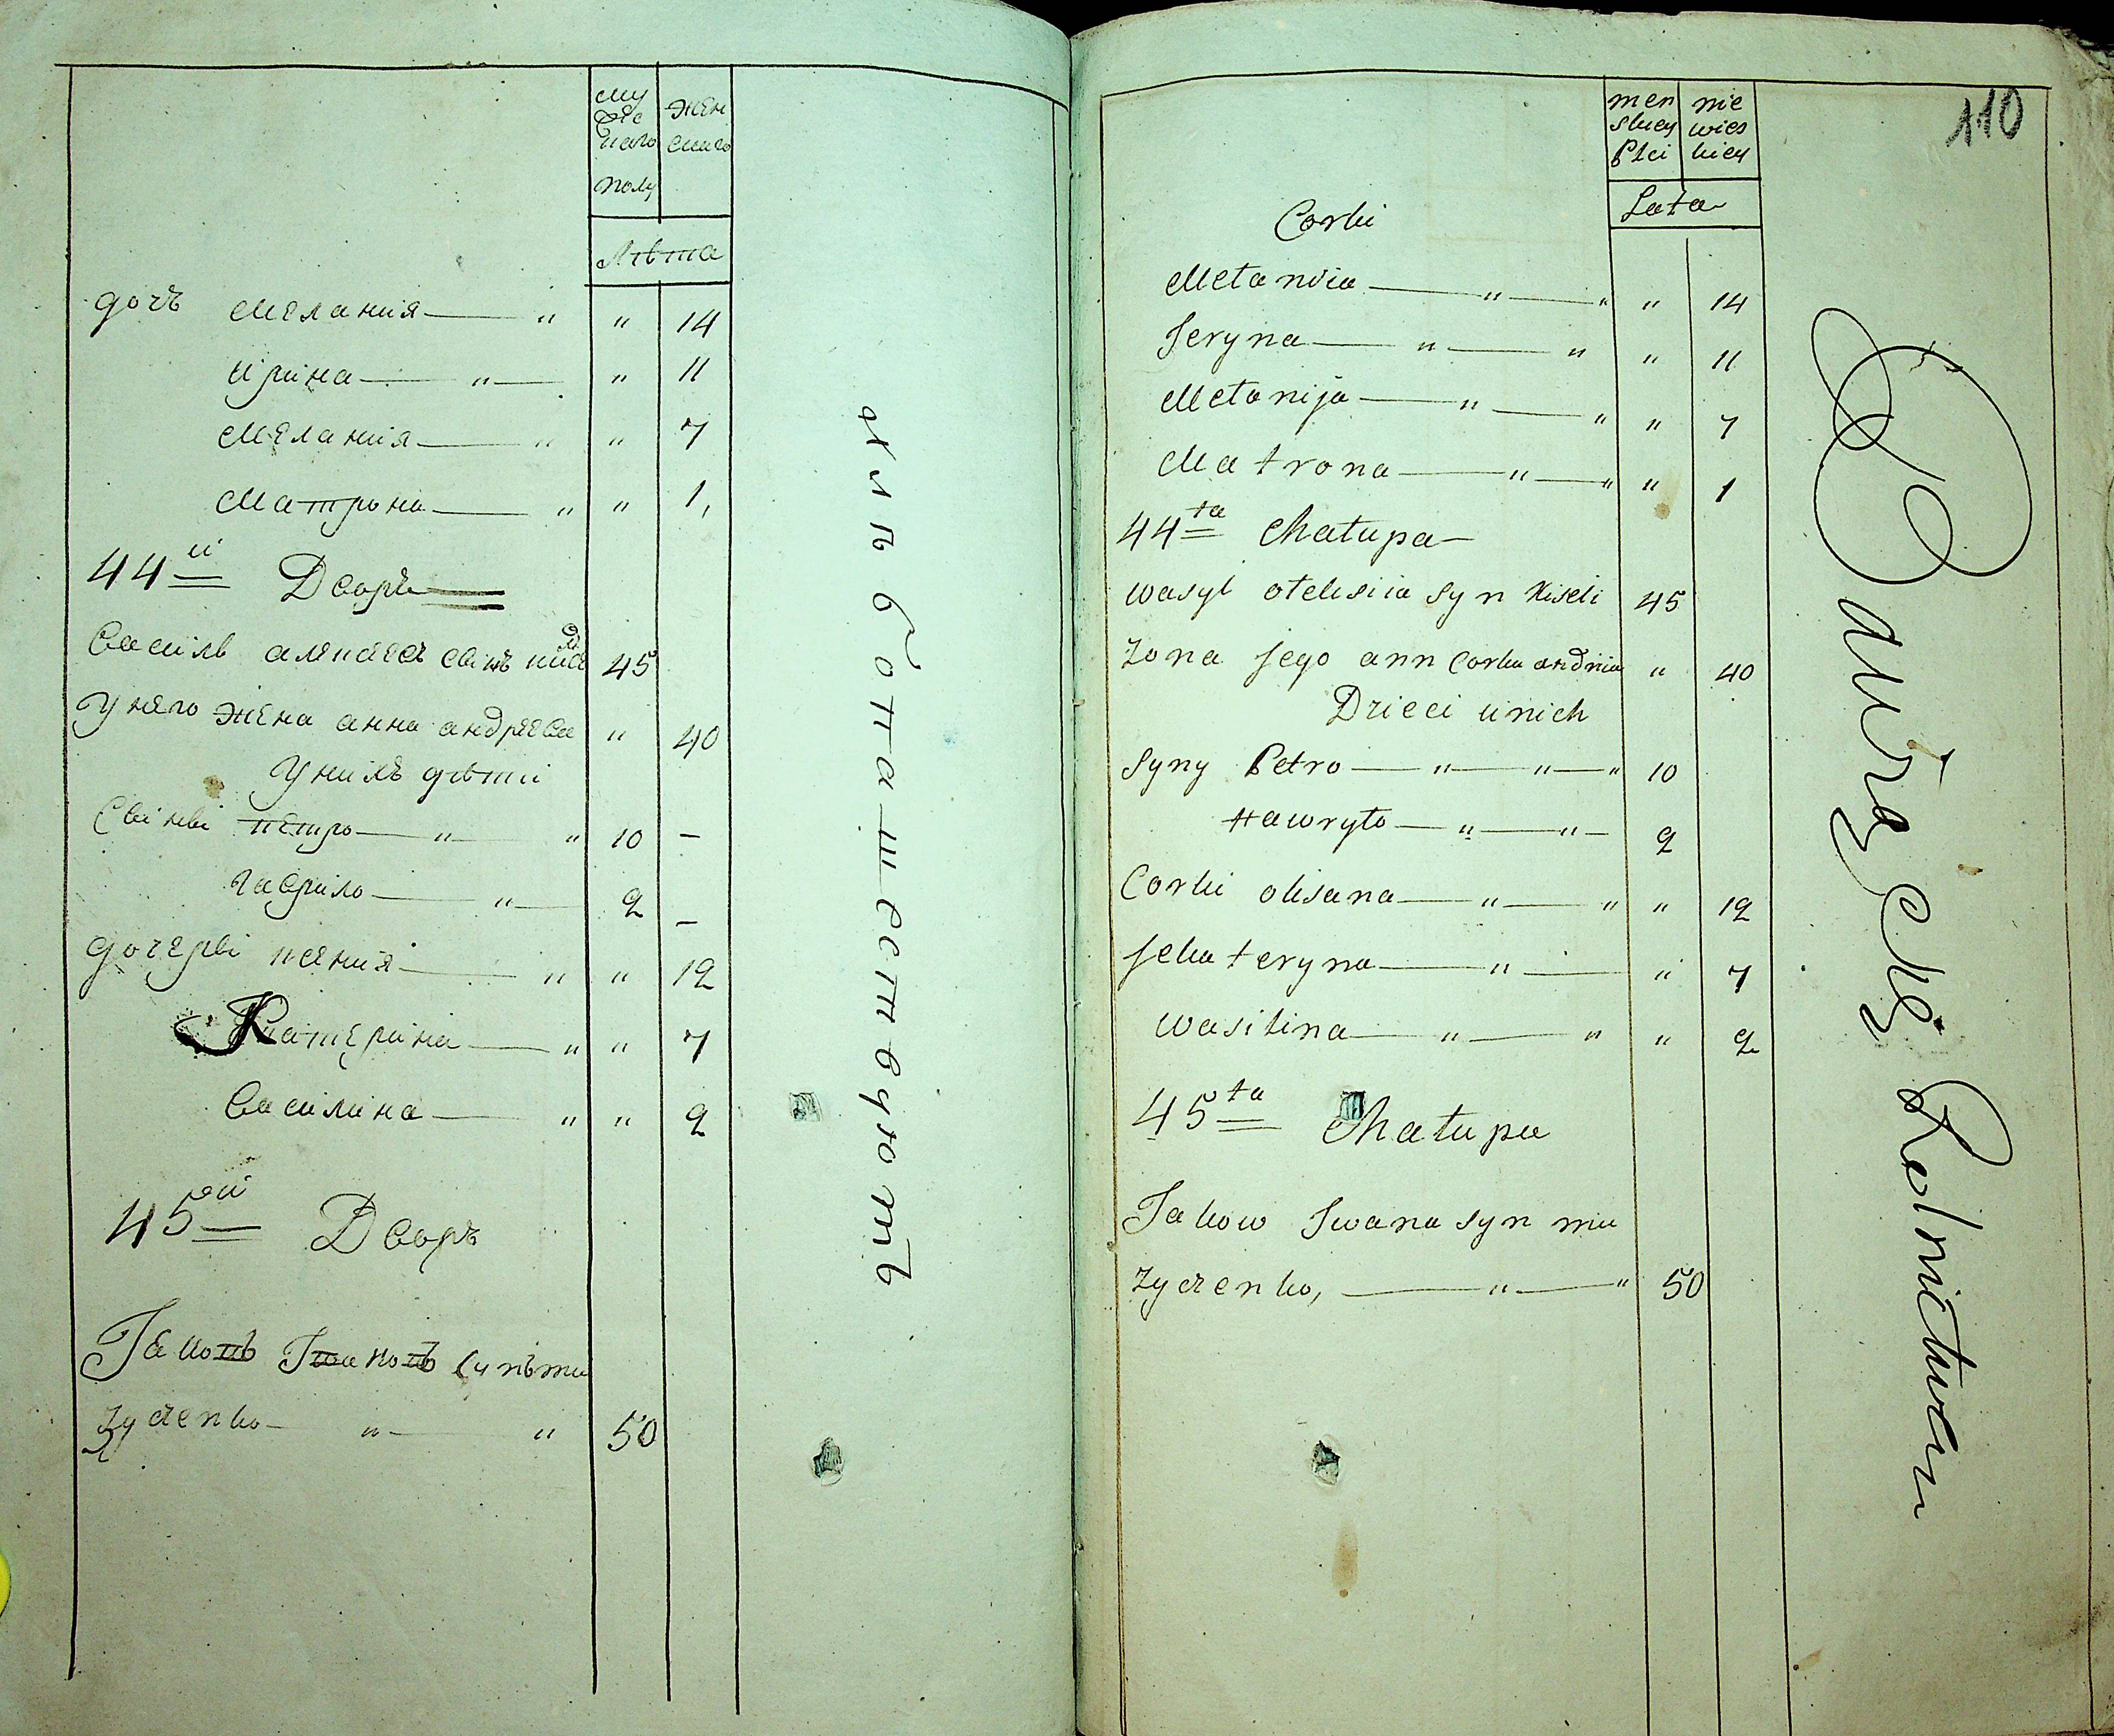 му жес каго полу
жен скаго
Лѣта
дочъ Мелания — " " 14
ирина — " — " 11
Мелания — " " 7
Матрона — " " 1,
44й Дворъ
Василь алексеевъ синъ кисѣль 45
У него жена анна андреева " 40
У нихъ дѣти
Синві петро — " " 10 —
гаврило — " — 2 —
дочерві ксения — " " 12
Катерина — " " 7
Василина — " " 2
45й Дворъ
Jаковъ Jвановъ синъ му
Zyczenko — " — " 50
хлѣбопашествуютъ
110
men skiey Płci
nie wies kiey
Lata
Corki
Metanvia — " — " " 14
Jeryna — " — " " 11
Metanija — " — " " 7
Matrona — " — " " 1
44ta Chatupa —
wasyl oteksiia syn kiseli 45
Zona jego ann Corka andriia " 40
Dzieci u nich
Syny Petro — " — " — " 10
Hawryto — " — " — 2
Corki oksana — " — " " 12
jekateryna — " — " 7
wasilina — " — " " 2
45ta Chatupa
Jakow Jwana syn mu
zyczenko, — " — " 50
Bawią się Rolnictwem